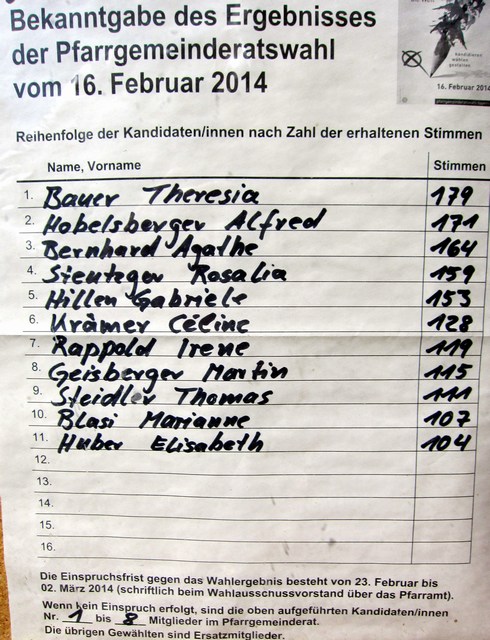 Bekanntgabe des Ergebnisses
der Pfarrgemeinderatswahl
vom 16. Februar 2014
kandidieren
wählen
gestalten
16. Februar 2014
Reihenfolge der Kandidaten/innen nach Zahl der erhaltenen Stimmen
Name, Vorname Stimmen
1. Bauer Theresia 179
2. Hobelsberger Alfred 171
3. Bernhard Agathe 164
4. Rosalia 159
5. Hillen Gabriele 153
6. Krämer Céline 128
7. Rappold Irene 119
8. Geisberger Martin 115
9. Steidler Thomas 111
10. Blasi Marianne 107
11. Huber Elisabeth 104
12.
13.
14.
15.
16.
Die Einspruchsfrist gegen das Wahlergebnis besteht von 23. Februar bis
02. März 2014 (schriftlich beim Wahlausschussvorstand über das Pfarramt).
Wenn kein Einspruch erfolgt, sind die oben aufgeführten Kandidaten/innen
Nr. 1 bis 8 Mitglieder im Pfarrgemeinderat.
Die übrigen Gewählten sind Ersatzmitglieder.